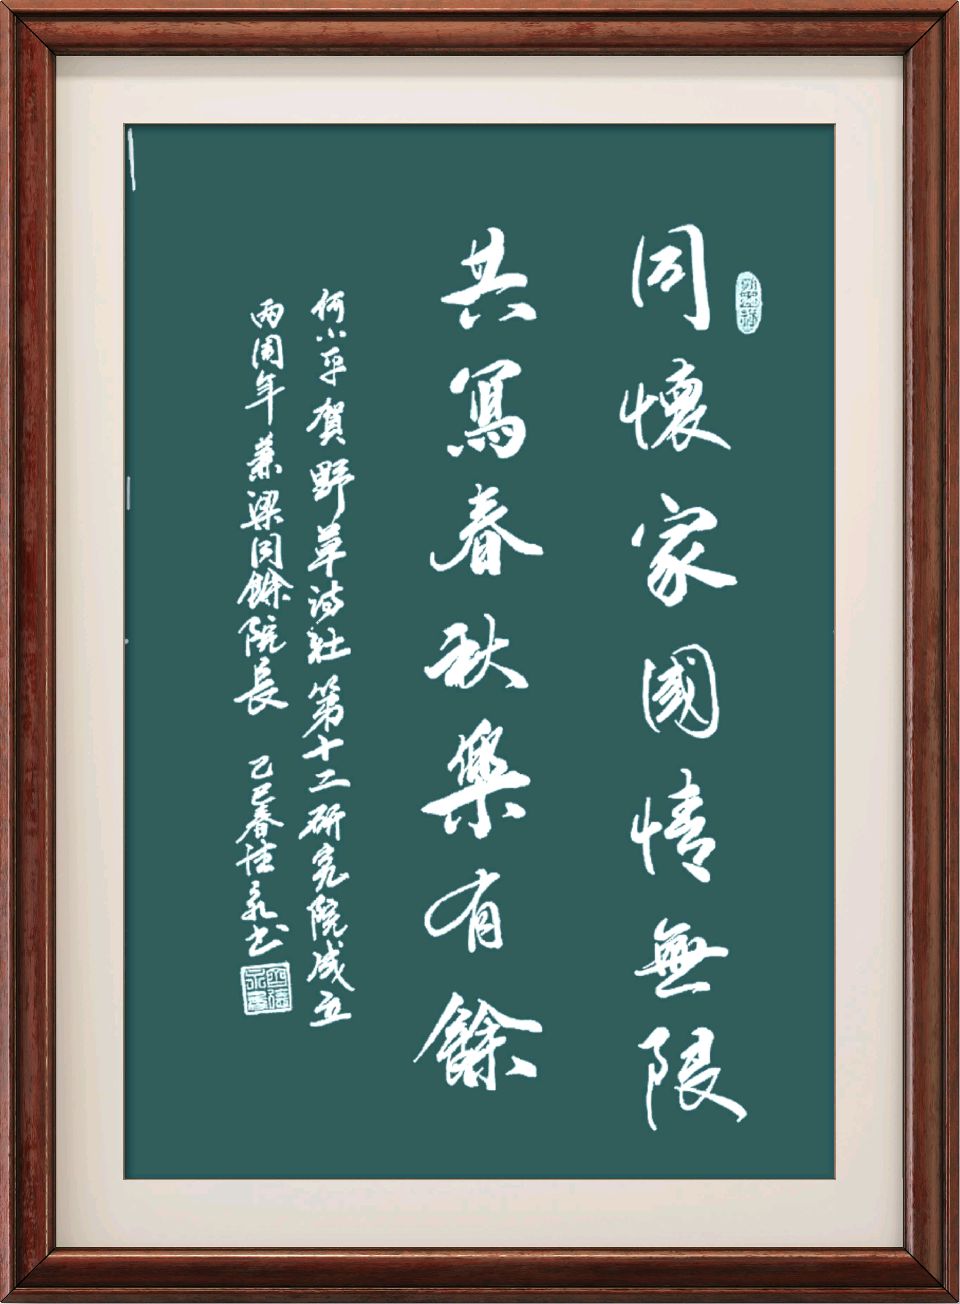 同懷家國情無限
共寫春秋樂有餘
何小平賀野草诗社第十二研究院成立
兩周年兼梁同餘院長 乙巳春佳永书